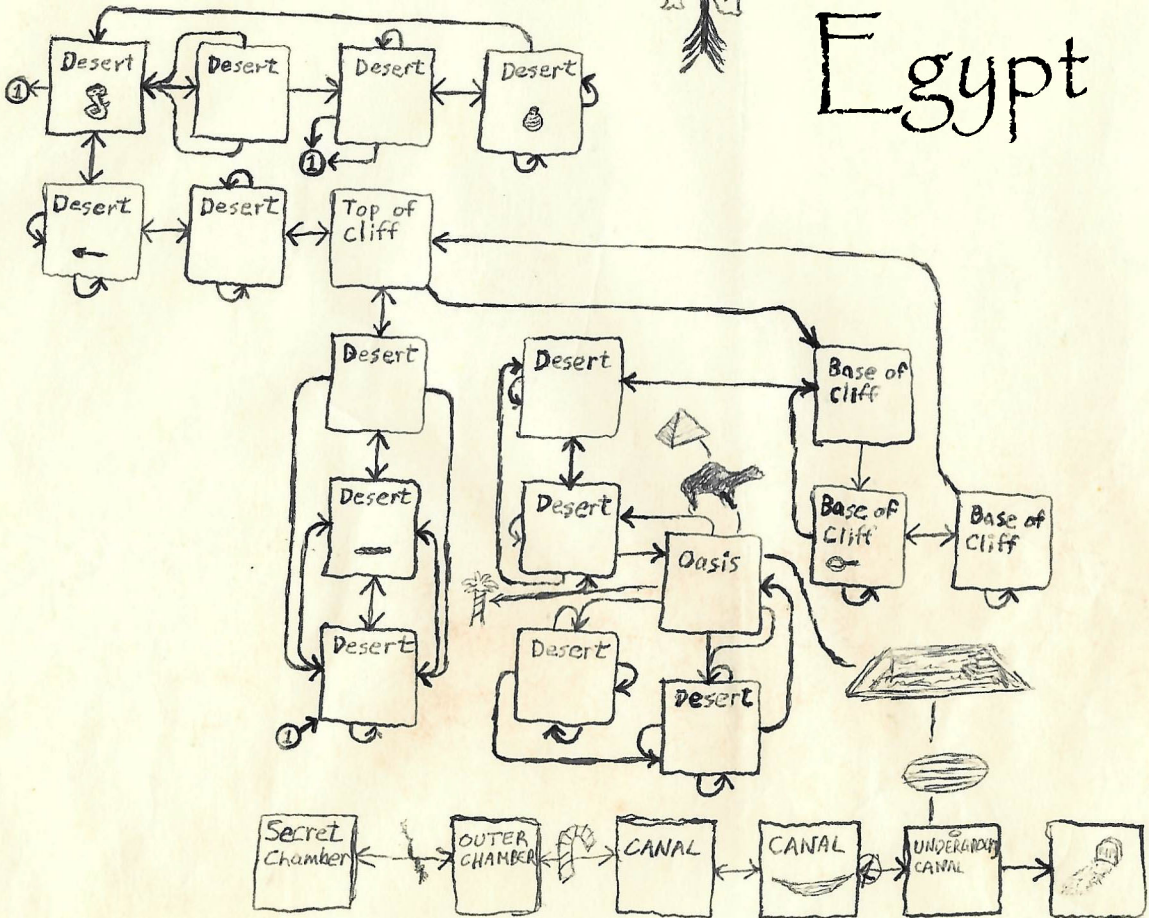 Egypt
Desert
Desert
Desert
Desert
1
1
Desert
Desert
Top of
Cliff
Desert
Desert
Base of
Cliff
Desert
Desert
Base of
Cliff
Base of
Cliff
Oasis
Desert
Desert
Desert
1
Secret
Chamber
OUTER
CHAMBER
CANAL
CANAL
UNDERGROUND
CANAL